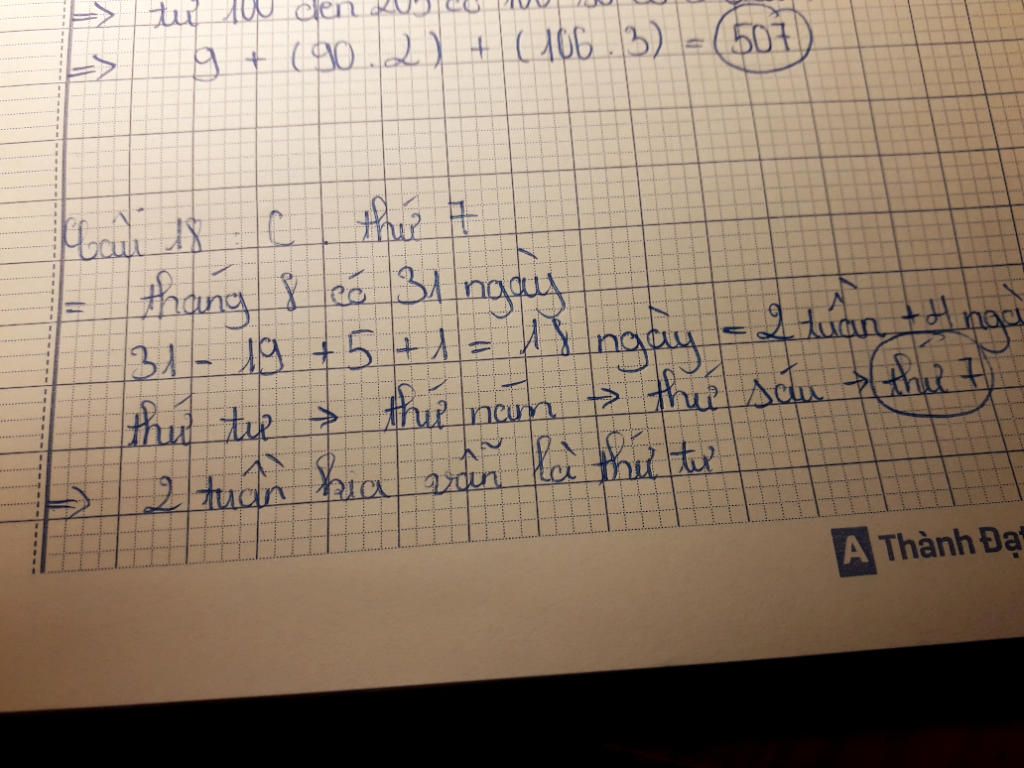 => từ 100 đến 205 có 106 số có
=> 9 + (90 . 2) + (106 . 3) = 507
Câu 18 : C . thứ 7
= tháng 8 có 31 ngày
31 - 19 + 5 + 1 = 18 ngày = 2 tuần + 4 ngà
thứ tư -> thứ năm -> thứ sáu -> thứ 7
=> 2 tuần kia vẫn là thứ tư
A Thành Đạt